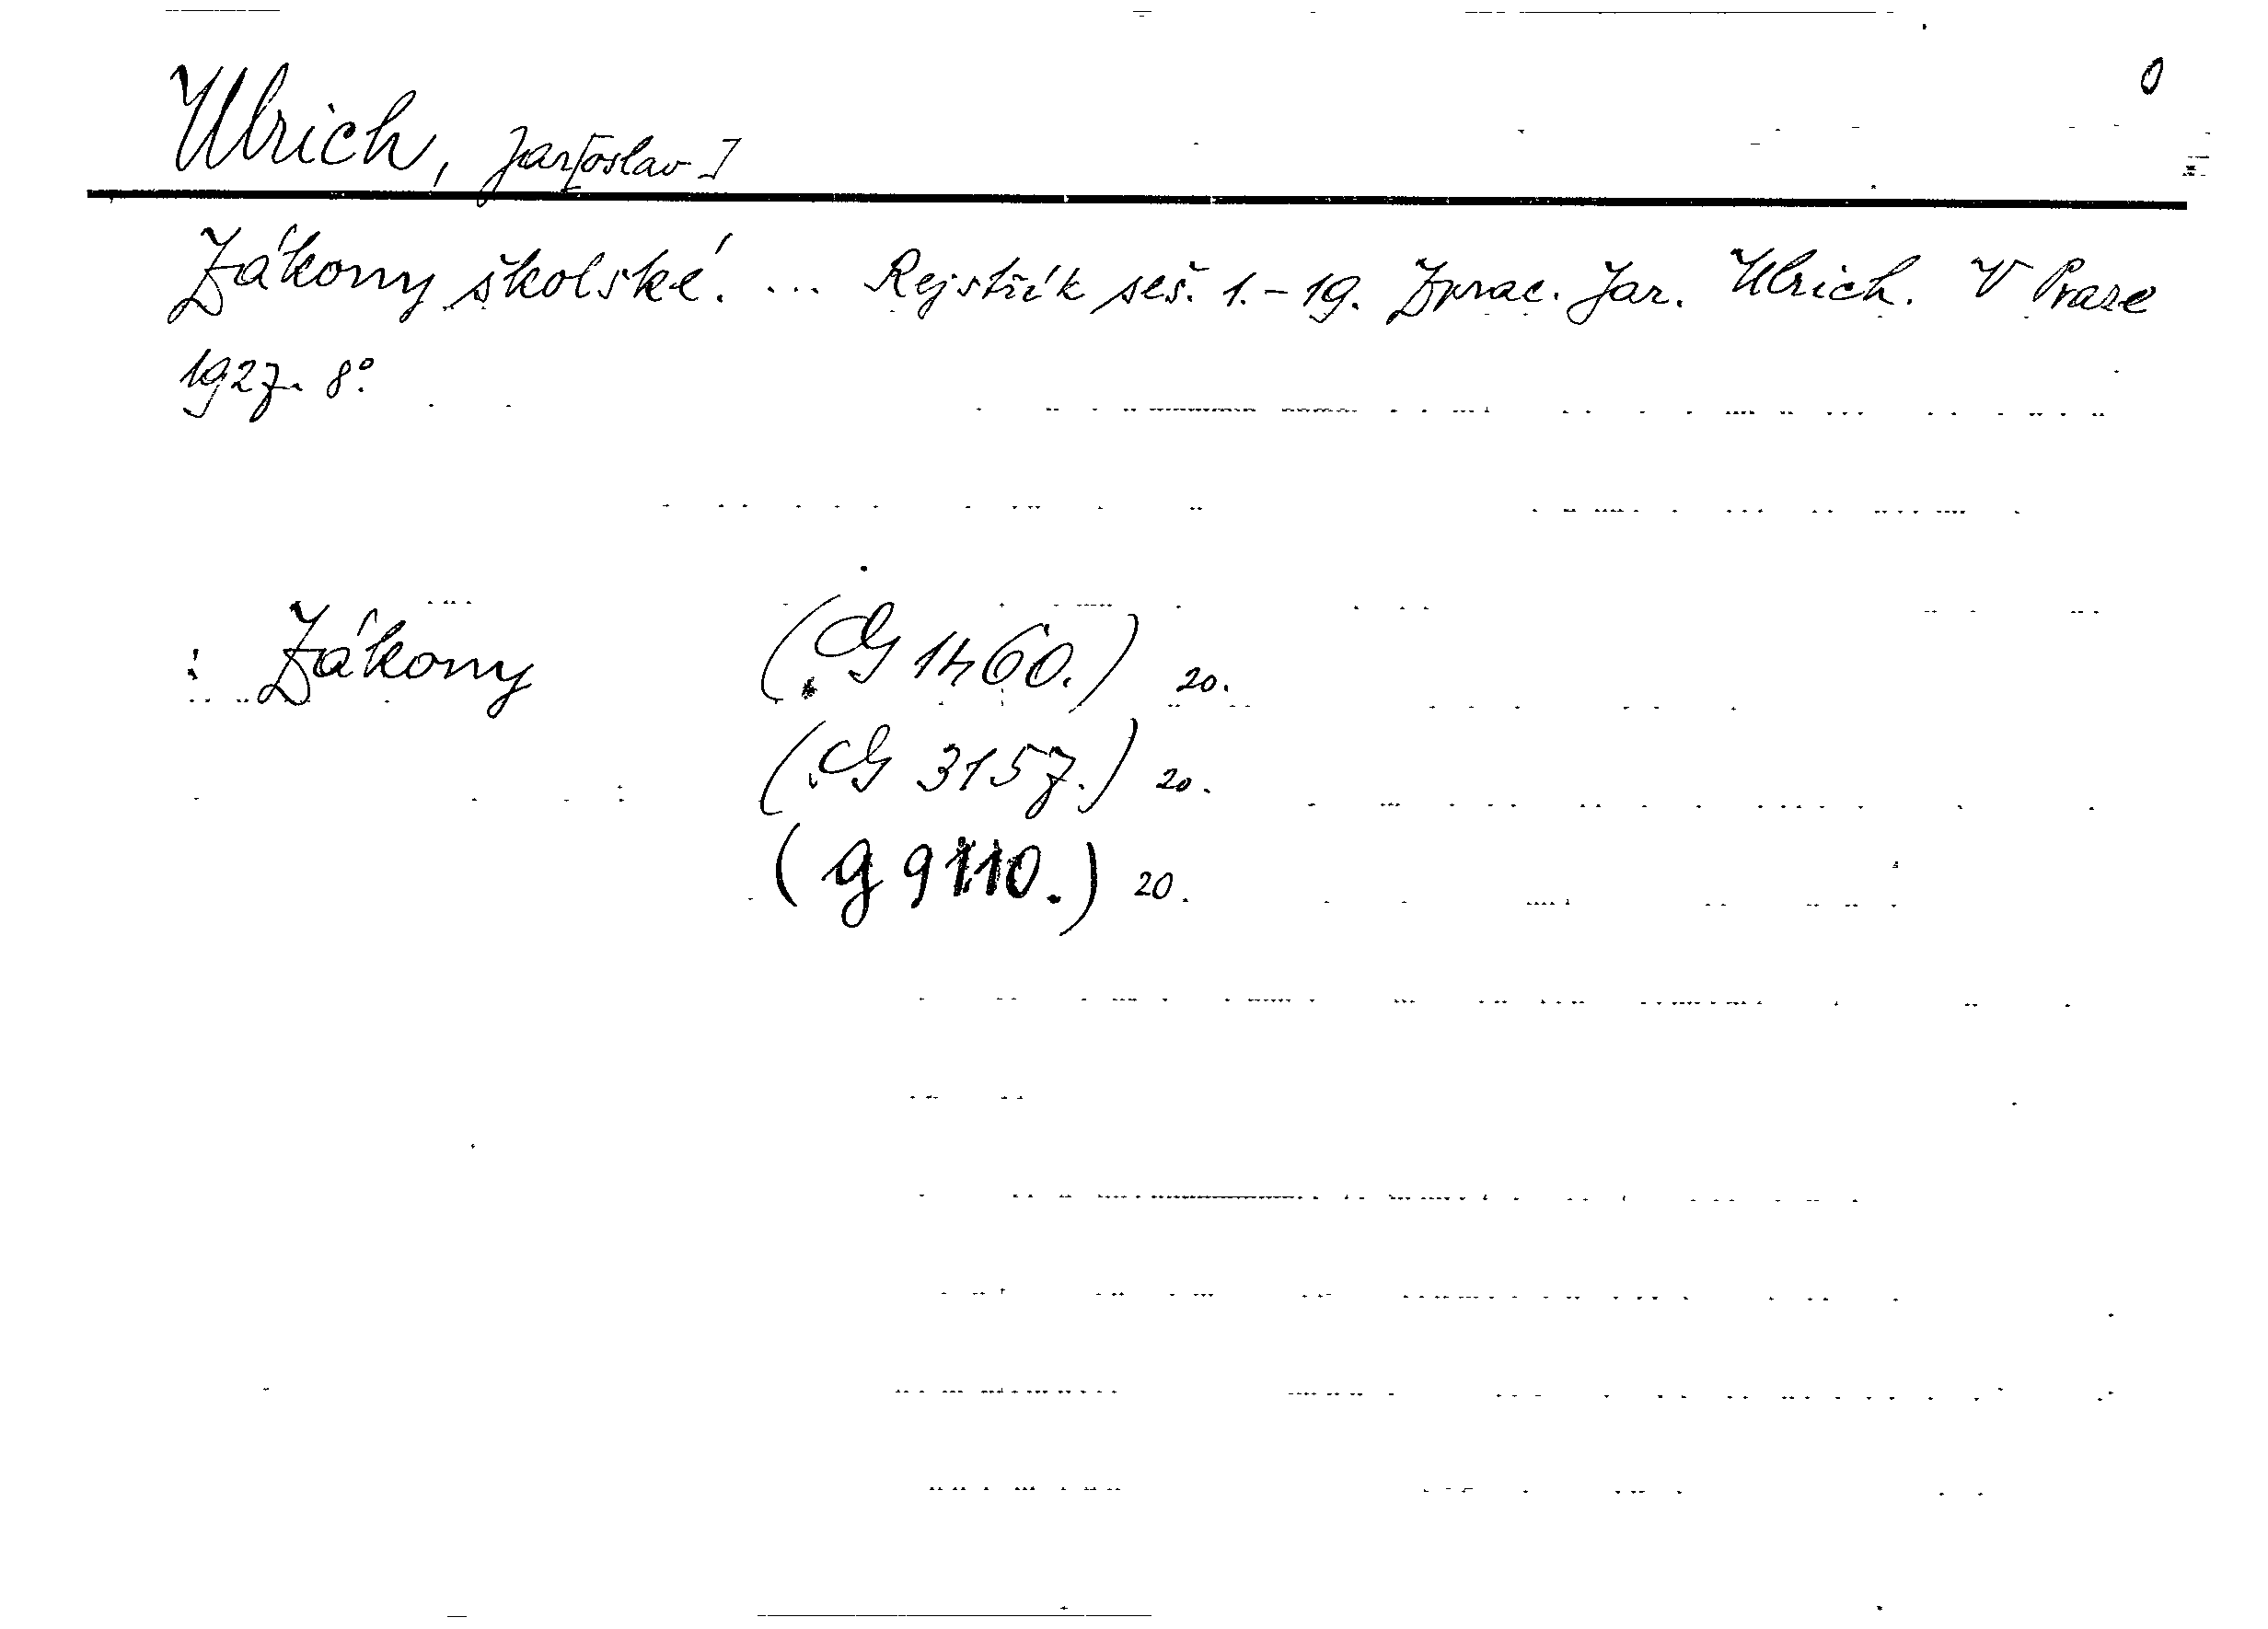 0
Ulrich, Jar[oslav]
Zákony školské. ... Rejstřík seš. 1.-19. Zprac. Jar. Ulrich. V Praze
1927. 8°.
: Zákony (G 1460.) 20.
(G 3157.) 20.
(g 9110.) 20.